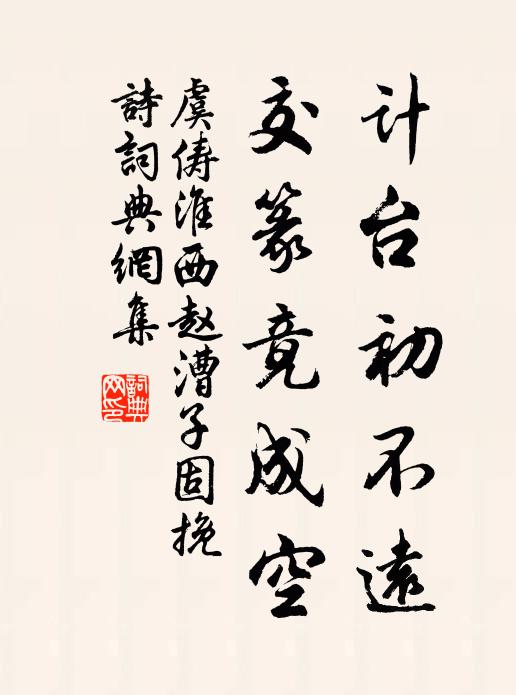 计台初不遠
交篆竟成空
虞俦淮西赵漕子固挽
詩詞典網集
詞典网印